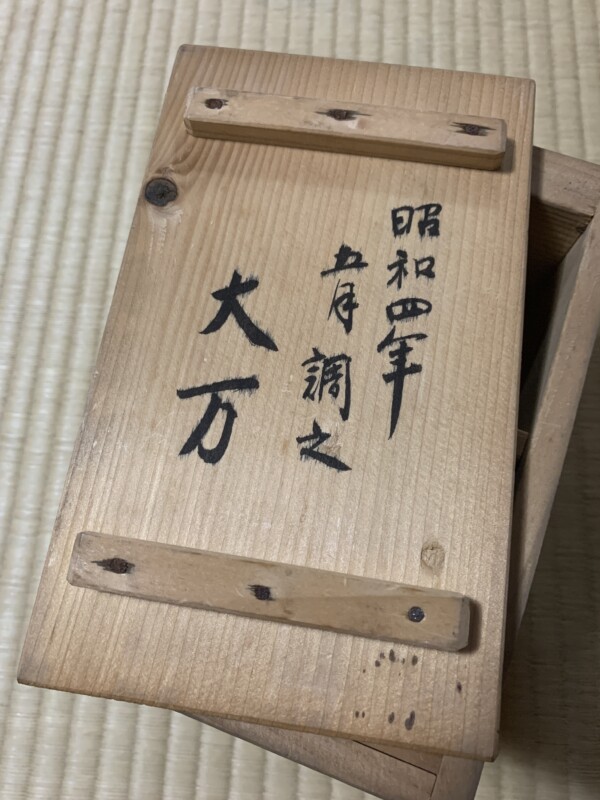 昭和四年
五月調之
大万